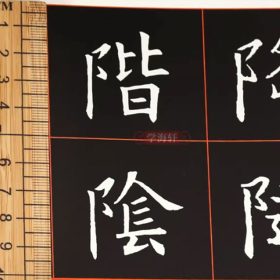 階
学海轩
陰
TM
1
2
3
4
5
6
7
8
9